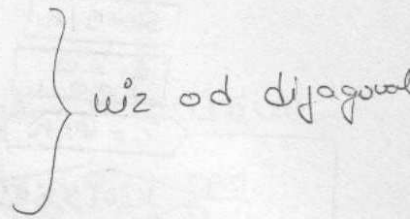 } wiz od dijagonal